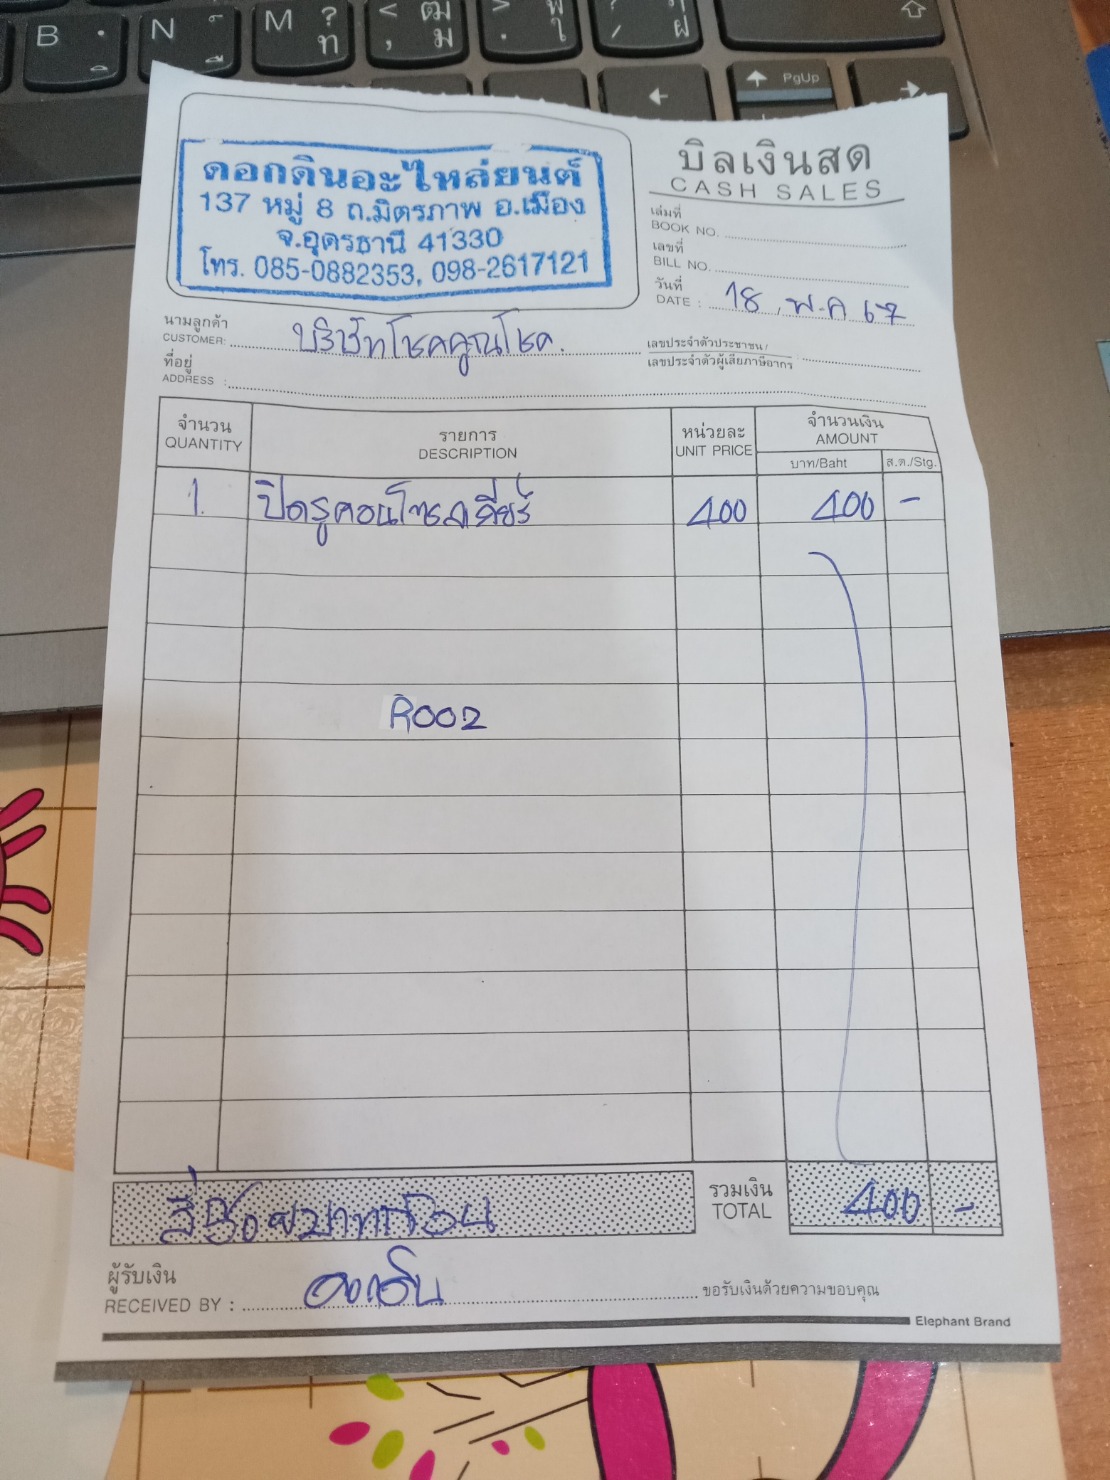 B
N
M ? ท
< ฒ , ม
> ฬ . ใ
? ฦ / ฝ
PgUp
ดอกดินอะไหล่ยนต์
137 หมู่ 8 ถ.มิตรภาพ อ.เมือง
จ.อุดรธานี 41330
โทร. 085-0882353, 098-2617121
บิลเงินสด
CASH SALES
เล่มที่
BOOK NO.
เลขที่
BILL NO.
วันที่
DATE : 18 พ.ค 67
นามลูกค้า
CUSTOMER: บริษัทโชคคูณโชค.
เลขประจำตัวประชาชน/
เลขประจำตัวผู้เสียภาษีอากร :
ที่อยู่
ADDRESS :
จำนวน รายการ หน่วยละ จำนวนเงิน
QUANTITY DESCRIPTION UNIT PRICE AMOUNT
บาท/Baht ส.ต./Stg.
1. 400 400 -
R002
สี่ร้อยบาทถ้วน รวมเงิน 400 -
TOTAL
ผู้รับเงิน
RECEIVED BY : ดอกดิน ขอรับเงินด้วยความขอบคุณ
Elephant Brand